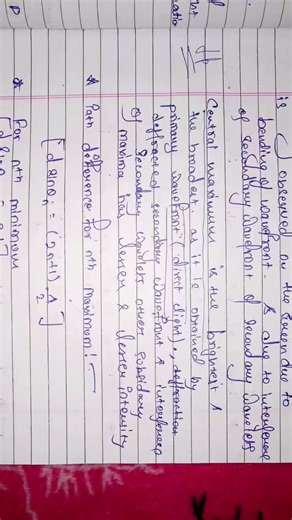 is observed on the screen due to
bending of wavefront. & due to interference
of secondary wavefront of secondary wavelets
Central maximum is the brightest &
the broadest as it is obtained by
primary wavefront (direct light), +, diffraction
diffracted secondary wavefront & interference
of secondary wavelets other subsidiary
maxima has lesser & lesser intensity
Path difference for nth maximum! —
[d sinθi = (2n+1) λ/2]
For nth minimum